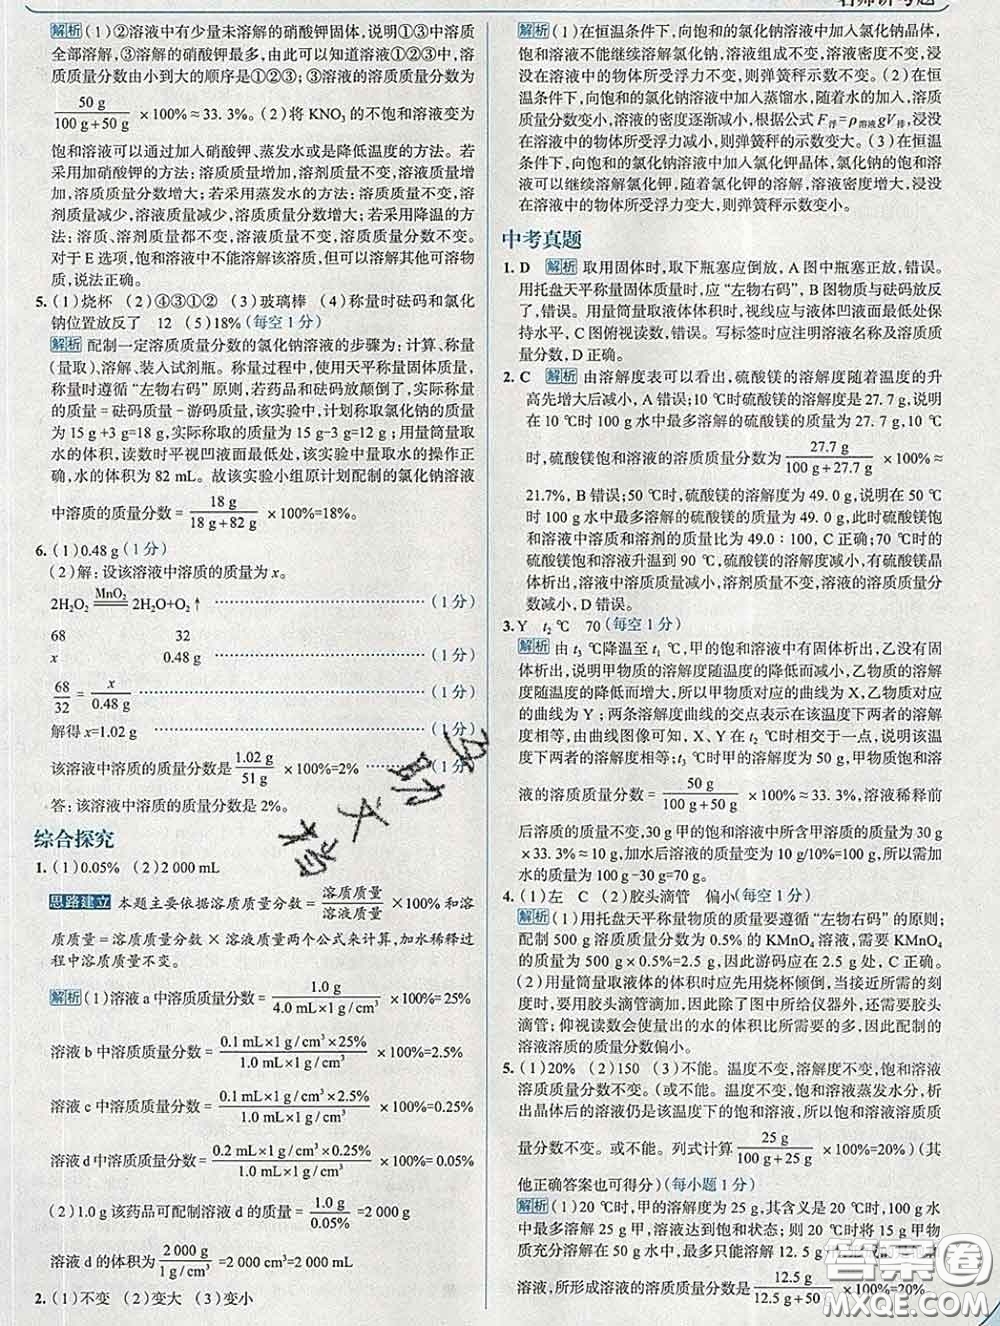 名师讲考题
解析 (1)②溶液中有少量未溶解的硝酸钾固体,说明①③中溶质
全部溶解,③溶解的硝酸钾最多,由此可以知道溶液①②③中,溶
质质量分数由小到大的顺序是①②③;③溶液的溶质质量分数为
50 g/(100 g+50 g) ×100%≈33. 3%。(2)将 KNO₃ 的不饱和溶液变为
饱和溶液可以通过加入硝酸钾、蒸发水或是降低温度的方法。若
采用加硝酸钾的方法:溶质质量增加,溶剂质量不变,溶液质量增
加,溶质质量分数增大;若采用蒸发水的方法:溶质质量不变,溶
剂质量减少,溶液质量减少,溶质质量分数增大;若采用降温的方
法:溶质、溶剂质量都不变,溶液质量不变,溶质质量分数不变。
对于 E 选项,饱和溶液中不能溶解该溶质,但可以溶解其他可溶物
质,说法正确。
5. (1)烧杯 (2)④③①② (3)玻璃棒 (4)称量时砝码和氯化
钠位置放反了 12 (5)18%(每空 1 分)
解析 配制一定溶质质量分数的氯化钠溶液的步骤为:计算、称量
(量取)、溶解、装入试剂瓶。称量过程中,使用天平称量固体质量,
称量时遵循“左物右码”原则,若药品和砝码放颠倒了,实际称量
的质量=砝码质量-游码质量,该实验中,计划称取氯化钠的质量
为 15 g +3 g=18 g,实际称取的质量为 15 g-3 g=12 g ;用量筒量取
水的体积,读数时平视凹液面最低处,该实验中量取水的操作正
确,水的体积为 82 mL。故该实验小组原计划配制的氯化钠溶液
中溶质的质量分数= 18 g/(18 g+82 g) ×100%=18%。
6. (1)0.48 g(1 分)
(2)解:设该溶液中溶质的质量为 x。
2H₂O₂ ==MnO₂== 2H₂O+O₂↑ (1 分)
68 32
x 0.48 g (1 分)
68/32 = x/0.48 g (1 分)
解得 x=1.02 g (1 分)
该溶液中溶质的质量分数是 1.02 g/51 g ×100%=2% (1 分)
答:该溶液中溶质的质量分数是 2%。
综合探究
1. (1)0.05% (2)2 000 mL
思路建立 本题主要依据溶质质量分数= 溶质质量/溶液质量 ×100% 和溶
质质量=溶质质量分数×溶液质量两个公式来计算,加水稀释过
程中溶质质量不变。
解析 (1)溶液 a 中溶质质量分数= 1.0 g/(4.0 mL×1 g/cm³) ×100%=25%
溶液 b 中溶质质量分数= (0.1 mL×1 g/cm³×25%)/(1.0 mL×1 g/cm³) ×100%=2.5%
溶液 c 中溶质质量分数= (0.1 mL×1 g/cm³×2.5%)/(1.0 mL×1 g/cm³) ×100%=0.25%
溶液 d 中溶质质量分数= (0.2 mL×1 g/cm³×0.25%)/(1.0 mL×1 g/cm³) ×100%=0.05%
(2)1.0 g 该药品可配制溶液 d 的质量= 1.0 g/0.05% =2 000 g
溶液 d 的体积为 2 000 g/(1 g/cm³) =2 000 cm³=2 000 mL
2. (1)不变 (2)变大 (3)变小
解析 (1)在恒温条件下,向饱和的氯化钠溶液中加入氯化钠晶体,
饱和溶液不能继续溶解氯化钠,溶液组成不变,溶液密度不变,浸
没在溶液中的物体所受浮力不变,则弹簧秤示数不变。(2)在恒
温条件下,向饱和的氯化钠溶液中加入蒸馏水,随着水的加入,溶质
质量分数变小,溶液的密度逐渐减小,根据公式 F浮=ρ溶液gV排,浸没
在溶液中的物体所受浮力减小,则弹簧秤的示数变大。(3)在恒温
条件下,向饱和的氯化钠溶液中加入氯化钾晶体,氯化钠的饱和溶液
可以继续溶解氯化钾,随着氯化钾的溶解,溶液密度增大,浸没
在溶液中的物体所受浮力变大,则弹簧秤示数变小。
中考真题
1. D 解析 取用固体时,取下瓶塞应倒放,A 图中瓶塞正放,错误。
用托盘天平称量固体质量时,应“左物右码”,B图物质与砝码放反
了,错误。用量筒量取液体体积时,视线应与液体凹液面最低处保
持水平,C 图俯视读数,错误。写标签时应注明溶液名称及溶质质
量分数,D 正确。
2. C 解析 由溶解度表可以看出,硫酸镁的溶解度随着温度的升
高先增大后减小,A 错误;10 ℃时硫酸镁的溶解度是 27. 7 g,说明
在 10 ℃时 100 g 水中最多溶解的硫酸镁的质量为 27. 7 g,10 ℃
时,硫酸镁饱和溶液的溶质质量分数为 27.7 g/(100 g+27.7 g) ×100%≈
21.7%,B 错误;50 ℃时,硫酸镁的溶解度为 49. 0 g,说明在 50 ℃
时 100 g 水中最多溶解的硫酸镁的质量为 49. 0 g,此时硫酸镁饱
和溶液中溶质和溶剂的质量比为 49.0∶100,C 正确;70 ℃时的
硫酸镁饱和溶液升温到 90 ℃,硫酸镁的溶解度减小,有硫酸镁晶
体析出,溶液中溶质质量减小,溶剂质量不变,溶液的溶质质量分
数减小,D 错误。
3. Y t₂ ℃ 70(每空 1 分)
解析 由 t₃ ℃降温至 t₁ ℃,甲的饱和溶液中有固体析出,乙没有固
体析出,说明甲物质的溶解度随温度的降低而减小,乙物质的溶解
度随温度的降低而增大,所以甲物质对应的曲线为 X,乙物质对应
的曲线为 Y ;两条溶解度曲线的交点表示在该温度下两者的溶解
度相等,由曲线图像可知,X、Y 在 t₂ ℃时相交于一点,说明该温
度下两者的溶解度相等;t₃ ℃时甲的溶解度为 50 g,此时甲饱和溶
液的溶质质量分数= 50 g/(100 g+50 g) ×100%≈33. 3%,溶液稀释前
后溶质的质量不变,30 g 甲的饱和溶液中所含甲溶质的质量为 30 g
×33. 3%≈10 g,加水后溶液质量变为 10 g/10%=100 g,所以需加
水的质量为 100 g-30 g=70 g。
4. (1)左 C (2)胶头滴管 偏小(每空 1 分)
解析 (1)用托盘天平称量物质的质量要遵循“左物右码”的原则;
配制 500 g 溶质质量分数为 0.5% 的 KMnO₄ 溶液,需要 KMnO₄
的质量为 500 g×0.5%=2.5 g,因此游码应在 2.5 g 处,C 正确。
(2)用量筒量取液体的体积时应先用烧杯倾倒,当接近所需的刻
度时,要用胶头滴管滴加,因此除了图中所给仪器外,还需要胶头
滴管;仰视读数会使量出的水的体积比需要的多,因此配制的
溶液溶质的质量分数偏小。
5. (1)20% (2)150 (3)不能。温度不变,溶解度不变,饱和溶液
溶质质量分数不变。(或不能。温度不变,饱和溶液蒸发水分,析
出晶体后的溶液仍是该温度下的饱和溶液,所以饱和溶液溶质质
量分数不变。或不能。列式计算 25 g/(100 g+25 g) ×100%=20%)(其
他正确答案也可得分)(每小题 1 分)
解析 (1)20 ℃时,甲的溶解度为 25 g,其含义是 20 ℃时,100 g 水
中最多溶解 25 g 甲,溶液达到饱和状态;则 20 ℃时将 15 g 甲物
质充分溶解在 50 g 水中,最多只能溶解 12. 5 g,形成的是饱和
溶液,所形成溶液的溶质质量分数是 12.5 g/(12.5 g+50 g) ×100%=20%
答案卷
MXQE.COM